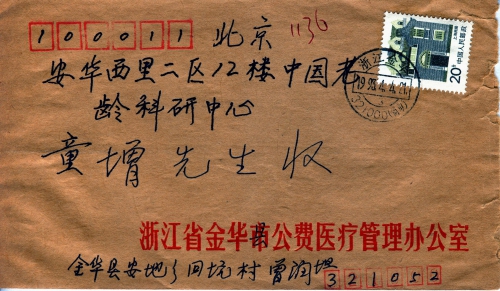 100011 北京 1136
安华西里二区12楼中国老
龄科研中心
童增先生收
浙江省金华县公费医疗管理办公室
金华县安地乡回坑村 曾润
321052
中国人民邮政
20分
浙江